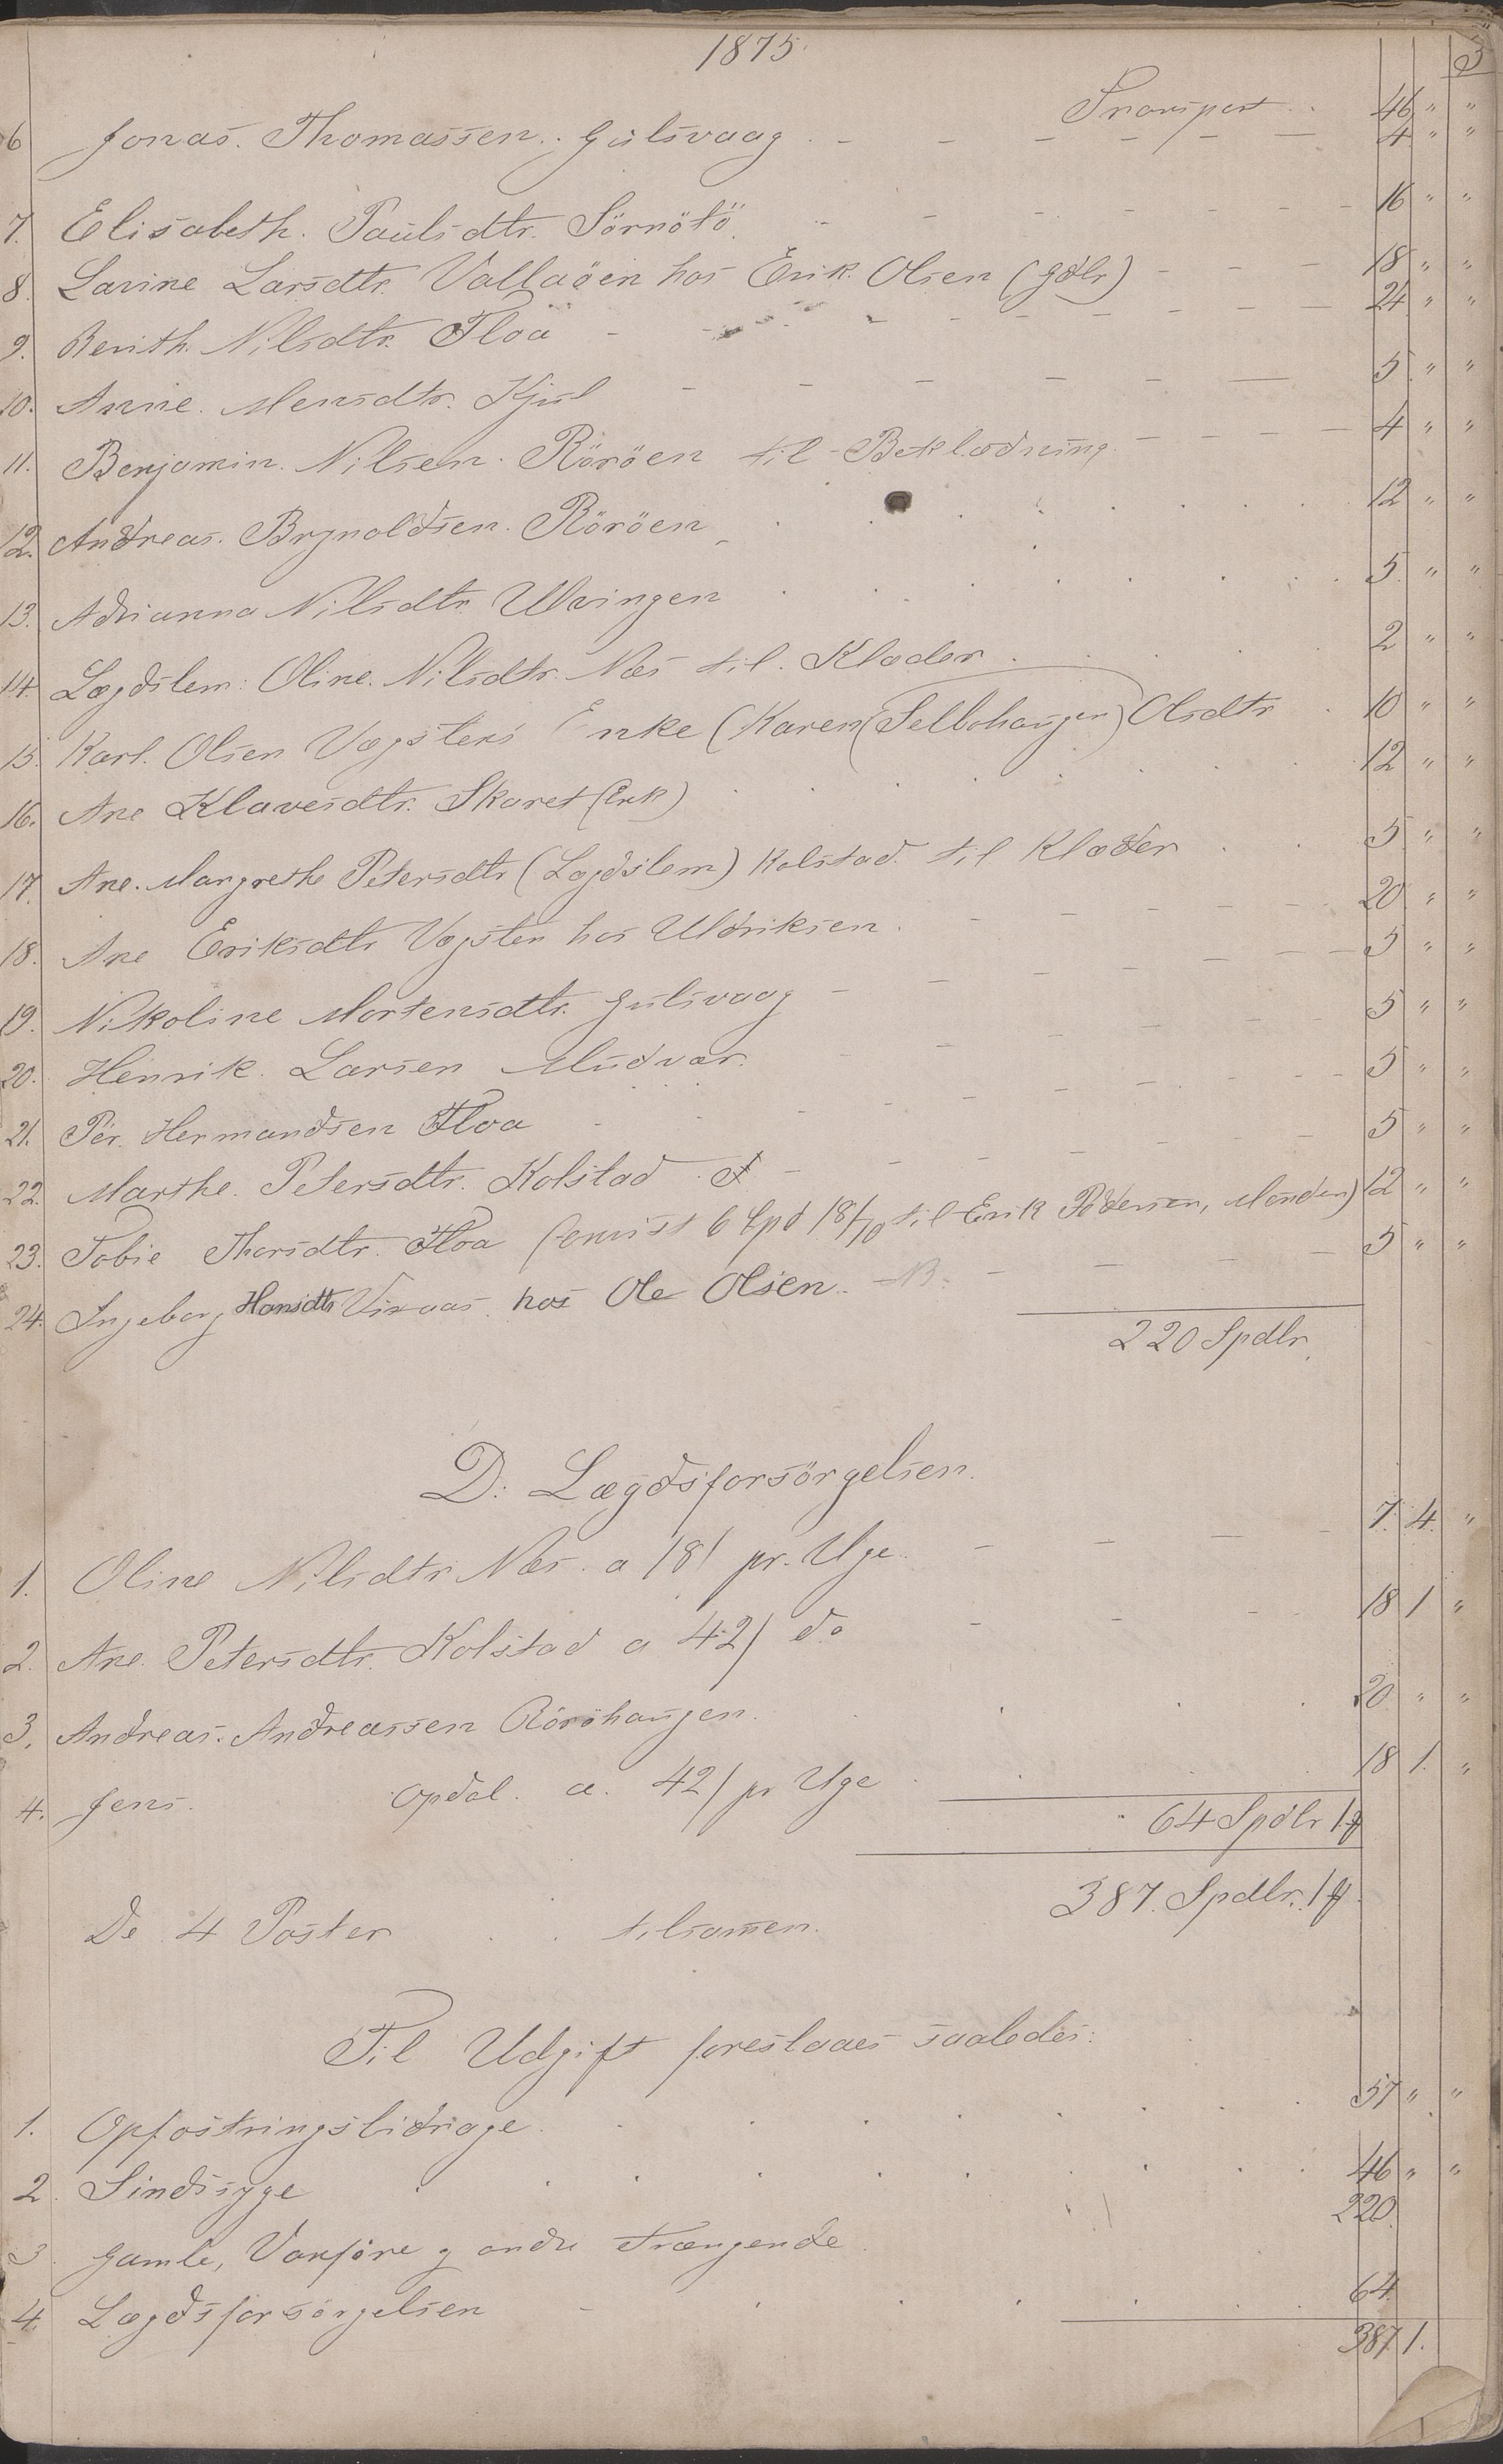 1875.
3
Transport . . 46 " "
6 Jonas. Thomassen. Gulsvaag - - - - - - 4 " "
7. Elisabeth. Paulsdtr. Sörnötö. - - - - 16 " "
8. Lavine Larsdtr. Vallaöen hos Erik. Olsen (gdlr) - - - 18 " "
9. Berith. Nilsdtr. Floa - - - - - 24 " "
10. Anne. Mensdtr. Kjul - - - - - - 5 " "
11. Benjamin. Nilsen. Röröen til Beklædning. - - - - 4 " "
12. Andreas. Brynoldsen. Röröen . . . . . 12 " "
13. Adrianna Nilsdtr. Ulvingen . . . . . 5 " "
14. Lægdslem: Oline. Nilsdtr. Næs til. Klæder . . . 2 " "
15. Karl. Olsen Vægsters Enke (Karen (Selbohaugen) Olsdtr . 10 " "
16. Ane Klavesdtr. Skaret (Enk) . . . . . 12 " "
17. Ane. Margrethe Petersdtr (Lægdslem) Kolstad. til Klæder . . 5 " "
18. Ane Eriksdtr Vægsten hos Uldriksen. - - - - 20 " "
19. Nikoline Mortensdtr. Gulsvaag - - - - - 5 " "
20. Henrik. Larsen Mudvær. - - - - 5 " "
21. Pér. Hermandsen Floa - - - - - 5 " "
22. Marthe. Petersdtr. Kolstad. - - - - 5 " "
23. Tobie Thorsdtr. Floa (anvist 6 Spd 18/10 til Erik Pedersen, Manden) 12 " "
24. Ingeborg Hansdtr Visaas. hos Ole Olsen. - - - - 5 " "
220 Spdlr.
D: Lægdsforsörgelsen.
1. Oline Nilsdtr Næs. a 18/ pr. Uge. - - - 7. 4. "
2. Ane. Petersdtr. Kolstad a 42/ do - - - 18 1 "
3. Andreas. Andreassen Röröhaugen. . . . 20 " "
4. Jens. Opdal. a. 42/ pr Uge . . . 18 1. "
64 Spdlr 1
387. Spdlr. 1
De 4 Poster . . tilsamen.
Til Udgift foreslaaes saaledes:
1. Opfostringsbidrage. . . . . . . 57 " "
2. Sindssyge . . . . . . . 46 " "
3. Gamle, Vanföre og andre Trængende. 220.
4. Lægdsforsörgelsen - . . . . 64.
387 1.